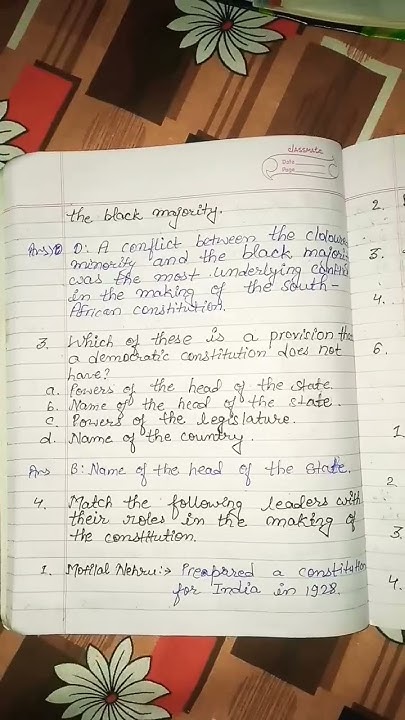 classmate
Date
Page
the black majority.
Ans) D: A conflict between the
minority and the black
was the most underlying
in the making of the South-
African constitution.
3. Which of these is a provision
a democratic constitution does not
have?
a. Powers of the head of the state.
b. Name of the head of the state.
c. Powers of the legislature.
d. Name of the country.
Ans B: Name of the head of the State.
4. Match the following leaders with
their roles in the making of
the constitution.
1. Motilal Nehru:→ Preapared a
for India in 1928.
2.
3.
4.
6.
1
2
3.
4.